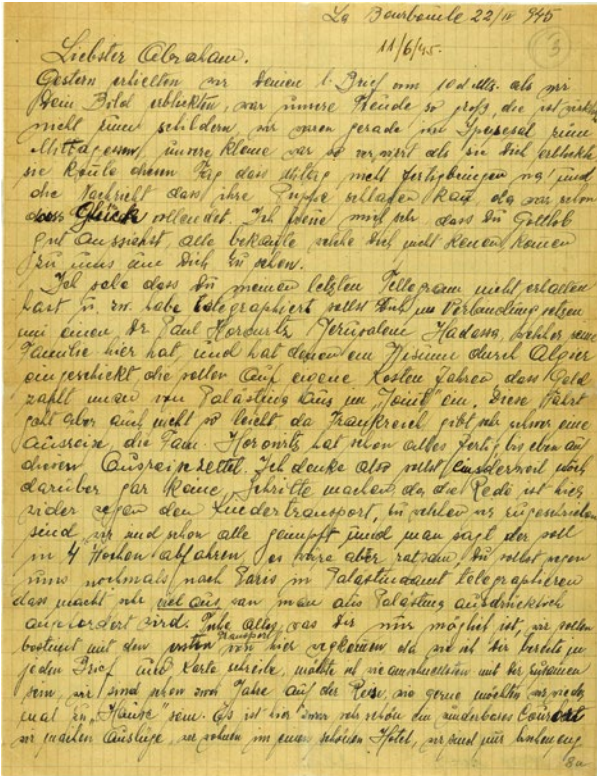 La Bourboule 22/IV 945
11/6/45.
3
Liebster Abraham.
Gestern erhielten wir Deinen l. Brief vom 10 d. Mts. als wir
Dein Bild erblickten, war unsere Freude so groß, die ist
nicht zum schildern, wir waren gerade im Speisesal zum
Mittagessen, unsere kleine war so verwirt als sie Dich erblickte
sie konte den Tag dass Mittag nicht fertigbringen und
die Nachricht dass ihre Puppe schlafen kan, da war schon
dass Glück vollendet. Ich freue mich sehr dass Du Gottlob
gut aussiehst, alle bekante welche Dich nicht kenen komen
zu uns um Dich zu sehen.
Ich sehe dass Du meinen letzten Telegram nicht erhalten
hast u. zw. habe telegraphiert sollst Dich in Verbindung setzen
mit einen Dr Paul Horowitz Jerusalem Hadassa, welcher seine
Familie hier hat, und hat denen ein Visum durch Algier
eingeschickt, die sollen auf eigene Kosten fahren dass Geld
zahlt man von Palästina aus im ein. Diese Fahrt
geht aber auch nicht so leicht da Frankreich gibt sehr schwer eine
Ausreise, die Fam. Horowitz hat schon alles fertig bis eben auf
diesen Ausreisezettel. Ich denke also sollst einsderweil noch
darüber gar keine Schritte machen da die Rede ist hier
wider wegen den Kindertransport, zu welchen wir zugeschrieben
sind, wir sind schon alle geimpft und man sagt der soll
in 4 Wochen abfahren, es wäre aber ratsam, Du sollst wegen
uns nochmals nach Paris in Palästinaamt telegraphieren
dass macht sehr viel aus, wan man aus Palästina ausdrücklich
angefordert wird. Tuhe alles was Dir nur möglich ist, wir sollen
bestimt mit dem ersten Transport von hier wegkomen da wie ich Dir bereits in
jeden Brief und Karte schreibe, möchte ich am mit Dir zusamen
sein, wir sind schon zwei Jahre auf der Reise, wie gerne möchten wir noch
mal zu „Hause" sein. Es ist hier zwar sehr schön ein wunderbares
wir machen Ausflüge, wir wohnen in einen schönen Hotel, wir sind nur